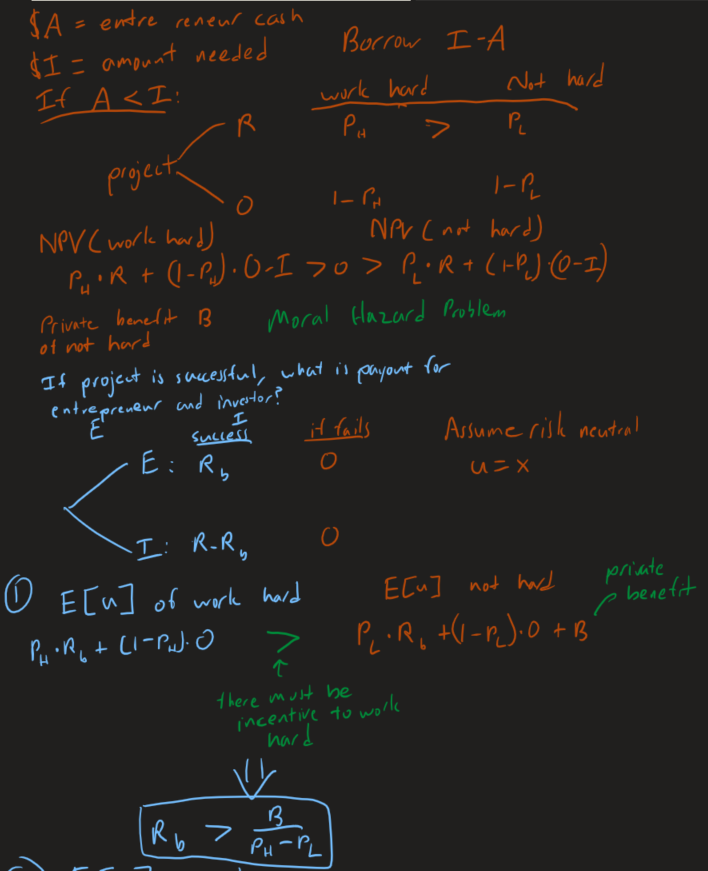 $A = entre reneur cash
$I = amount needed
Borrow I-A
If A < I:
work hard Not hard
R P_H > P_L
project
O 1-P_H 1-P_L
NPV(work hard) NPV (not hard)
P_H · R + (1-P_H) · 0 - I > 0 > P_L · R + (1-P_L) · (0-I)
Private benefit B
of not hard
Moral Hazard Problem
If project is successful, what is payout for
entrepreneur and investor?
E I
success if fails Assume risk neutral
E: R_b 0 u = x
I: R-R_b 0
① E[u] of work hard E[u] not hard private benefit
P_H · R_b + (1-P_H) · 0 > P_L · R_b + (1-P_L) · 0 + B
there must be
incentive to work
hard
R_b > B / (P_H - P_L)